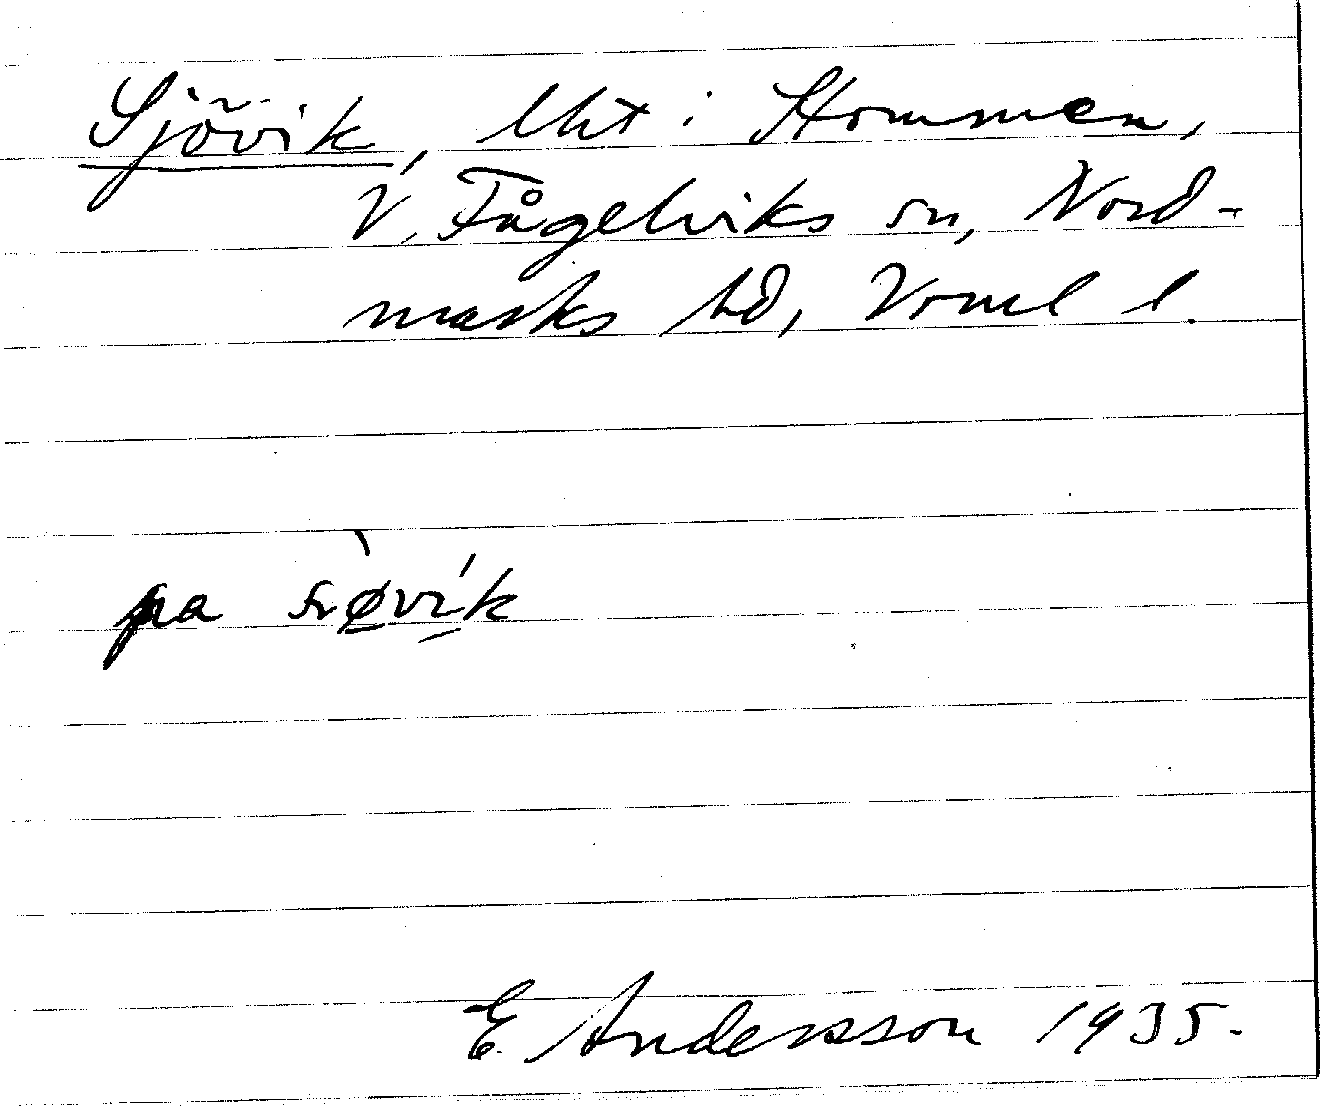 Sjövik, lht i Strommen,
V. Fågelviks sn, Nord-
marks hd, Vrml l.
pa søvik
E. Andersson 1935.